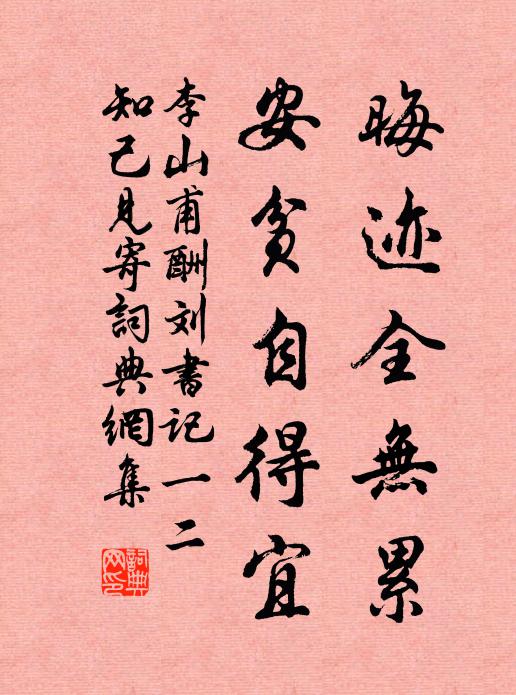 晦迹全無累
安貧自得宜
李山甫酬刘書記一二
知己見寄詞典網集
詞典网印